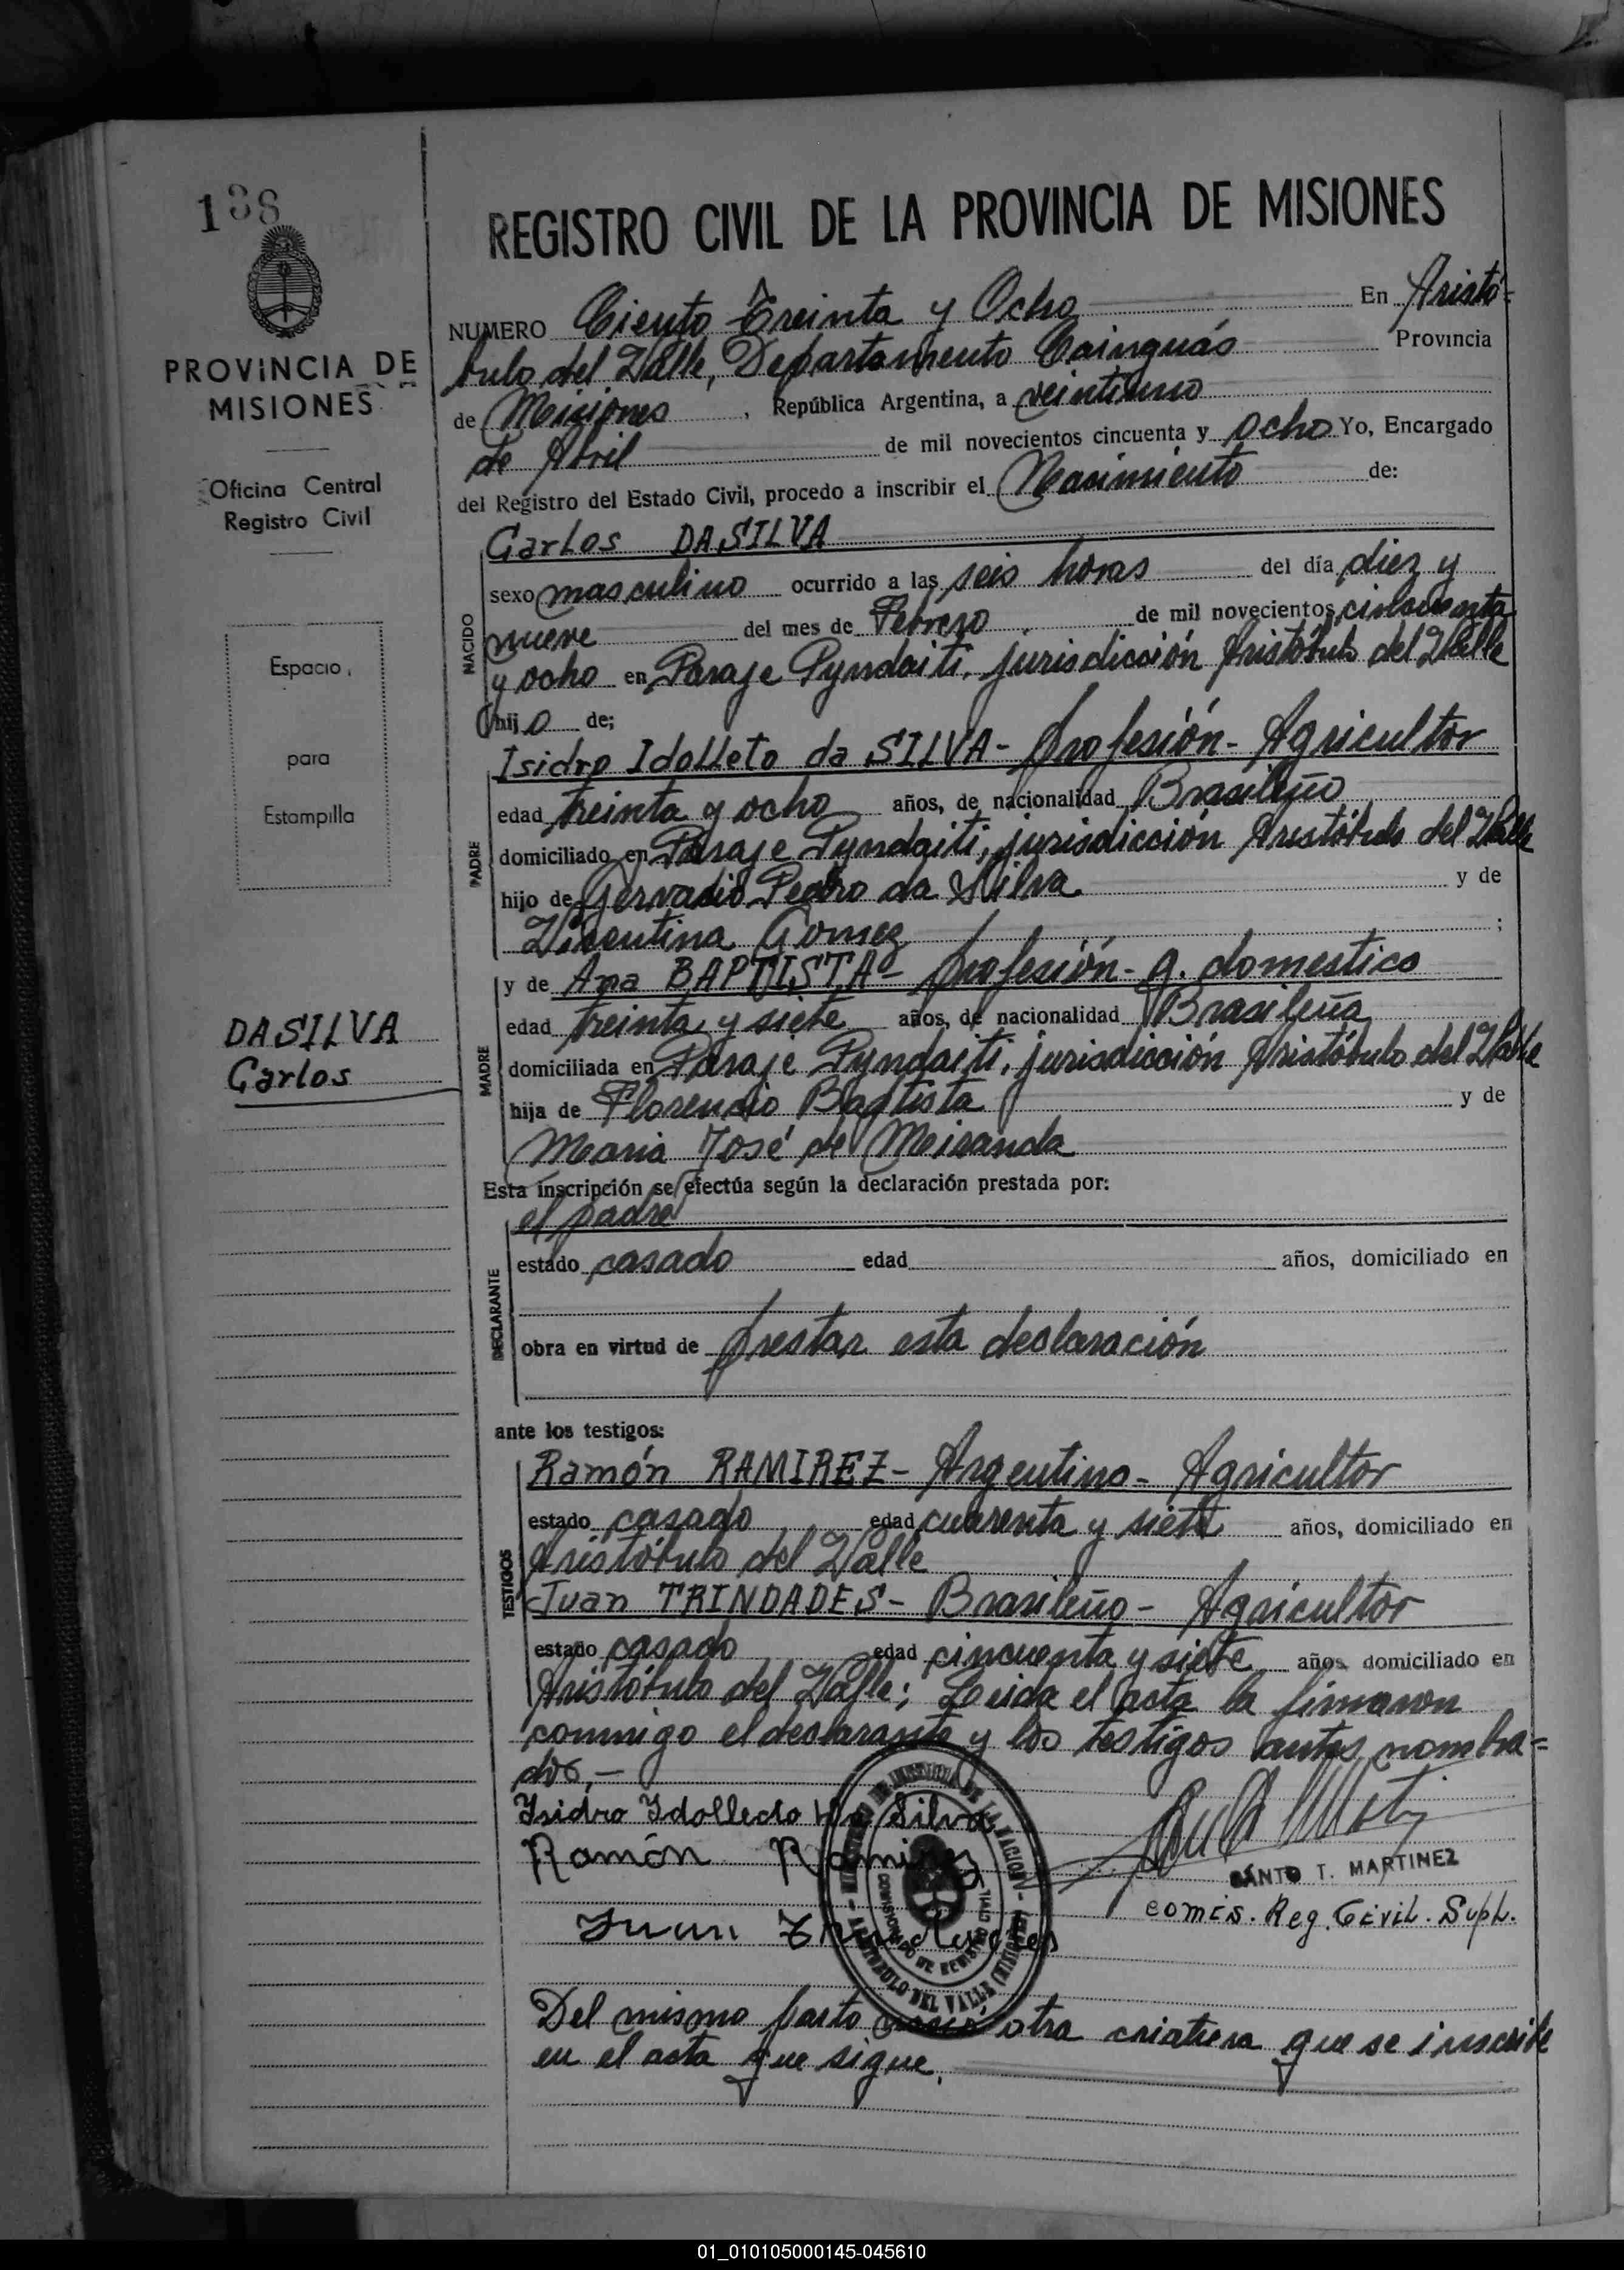 138
PROVINCIA DE
MISIONES
Oficina Central
Registro Civil
Espacio
para
Estampilla
DASILVA
Carlos
REGISTRO CIVIL DE LA PROVINCIA DE MISIONES
NUMERO Ciento Treinta y Ocho En Aristó-
bulo del Valle, Departamento Cainguás Provincia
de Misiones, República Argentina, a veintiuno
de Abril de mil novecientos cincuenta y ocho Yo, Encargado
del Registro del Estado Civil, procedo a inscribir el Nacimiento de:
NACIDO
Carlos DASILVA
sexo masculino ocurrido a las seis horas del día diez y
nueve del mes de Febrero de mil novecientos cincuenta
y ocho en Paraje Pyndaiti, jurisdicción Aristóbulo del Valle
hijo de;
PADRE
Isidro Idolleto da SILVA- profesión- Agricultor
edad treinta y ocho años, de nacionalidad Brasileño
domiciliado en Paraje Pyndaiti, jurisdicción Aristóbulo del Valle
hijo de Gervacio Pedro da Silva y de
Vicentina Gomez ;
MADRE
y de Ana BAPTISTA- profesión- q. domestico
edad treinta y siete años, de nacionalidad Brasileña
domiciliada en Paraje Pyndaiti, jurisdicción Aristóbulo del Valle
hija de Florencio Baptista y de
Maria José de Meiranda
Esta inscripción se efectúa según la declaración prestada por:
DECLARANTE
el padre
estado casado edad años, domiciliado en
obra en virtud de prestar esta declaración
ante los testigos:
TESTIGOS
Ramón RAMIREZ- Argentino- Agricultor
estado casado edad cuarenta y siete años, domiciliado en
Aristóbulo del Valle
Juan TRINDADES- Brasileño- Agricultor
estado casado edad cincuenta y siete años domiciliado en
Aristóbulo del Valle; Leida el acta la firmaron
conmigo el declarante y los testigos antes nombra=
dos,-
Isidro Idolledo Da Silva
Ramón Ramirez
SANTO T. MARTINEZ
comis. Reg. Civil. Supl.
Juan Trindades
DE JUSTICIA DE LA NACION
ARISTOBULO DEL VALLE (MISIONES)
COMISIONADO DE REGISTRO CIVIL
Del mismo parto nació otra criatura que se inscribe
en el acta que sigue.
01_010105000145-045610